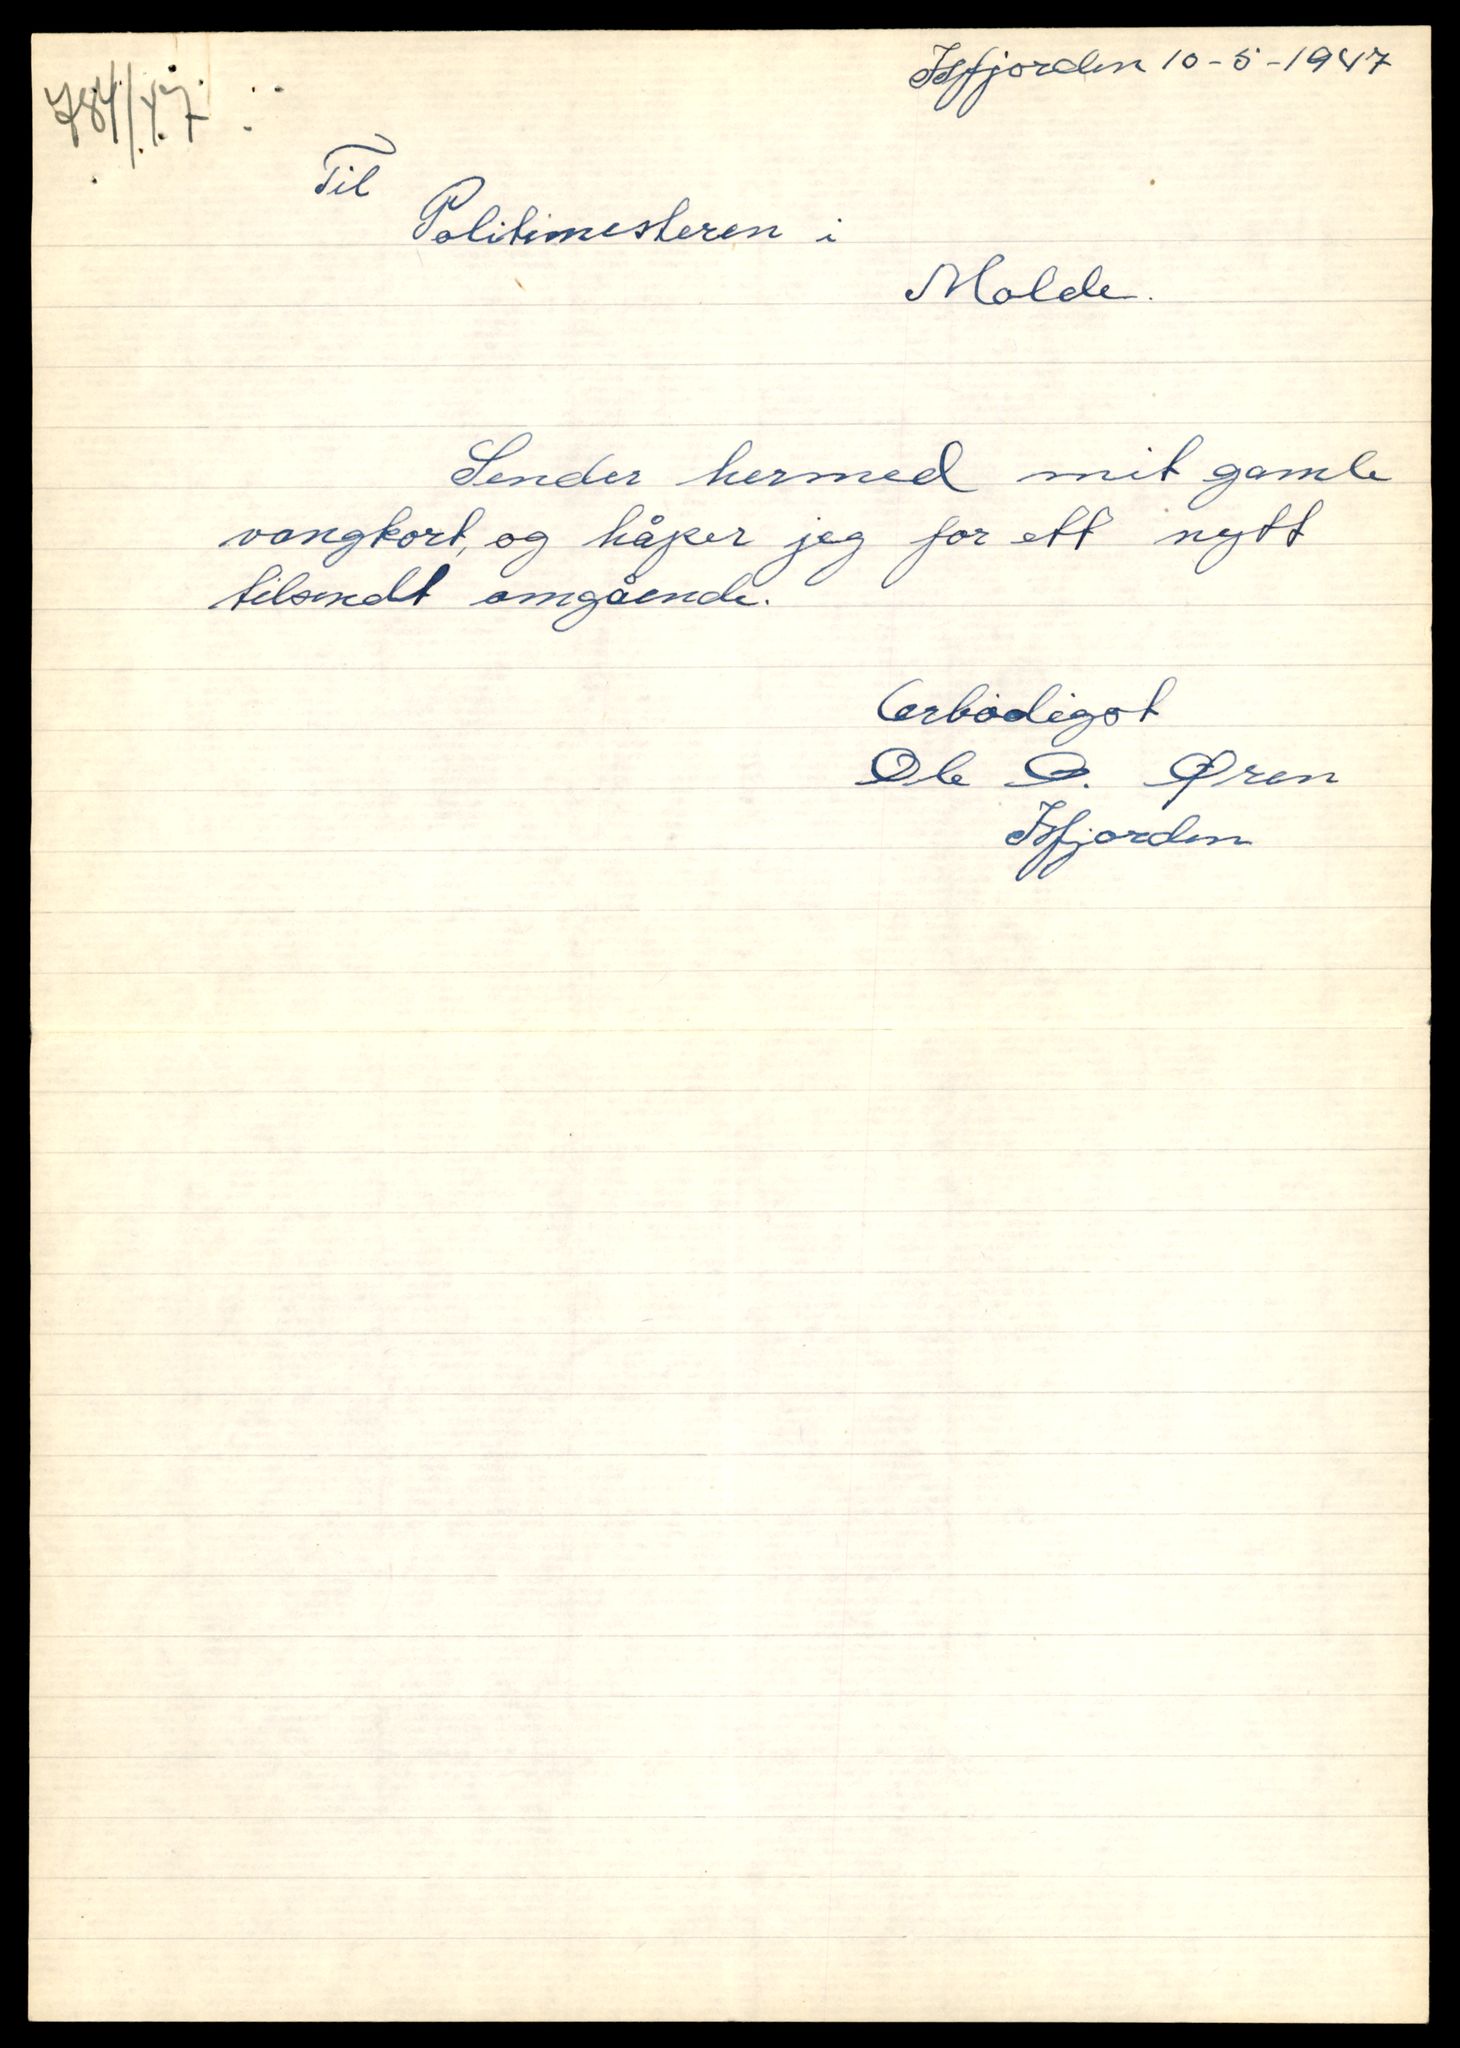 Isfjorden 10-5-1947
784/47
Til
Politimesteren i
Molde.
Sender hermed mit gamle
vongkort, og håper jeg for ett nytt
tilsendt omgående.
Erbødigst
Ole O. Øren
Isfjorden